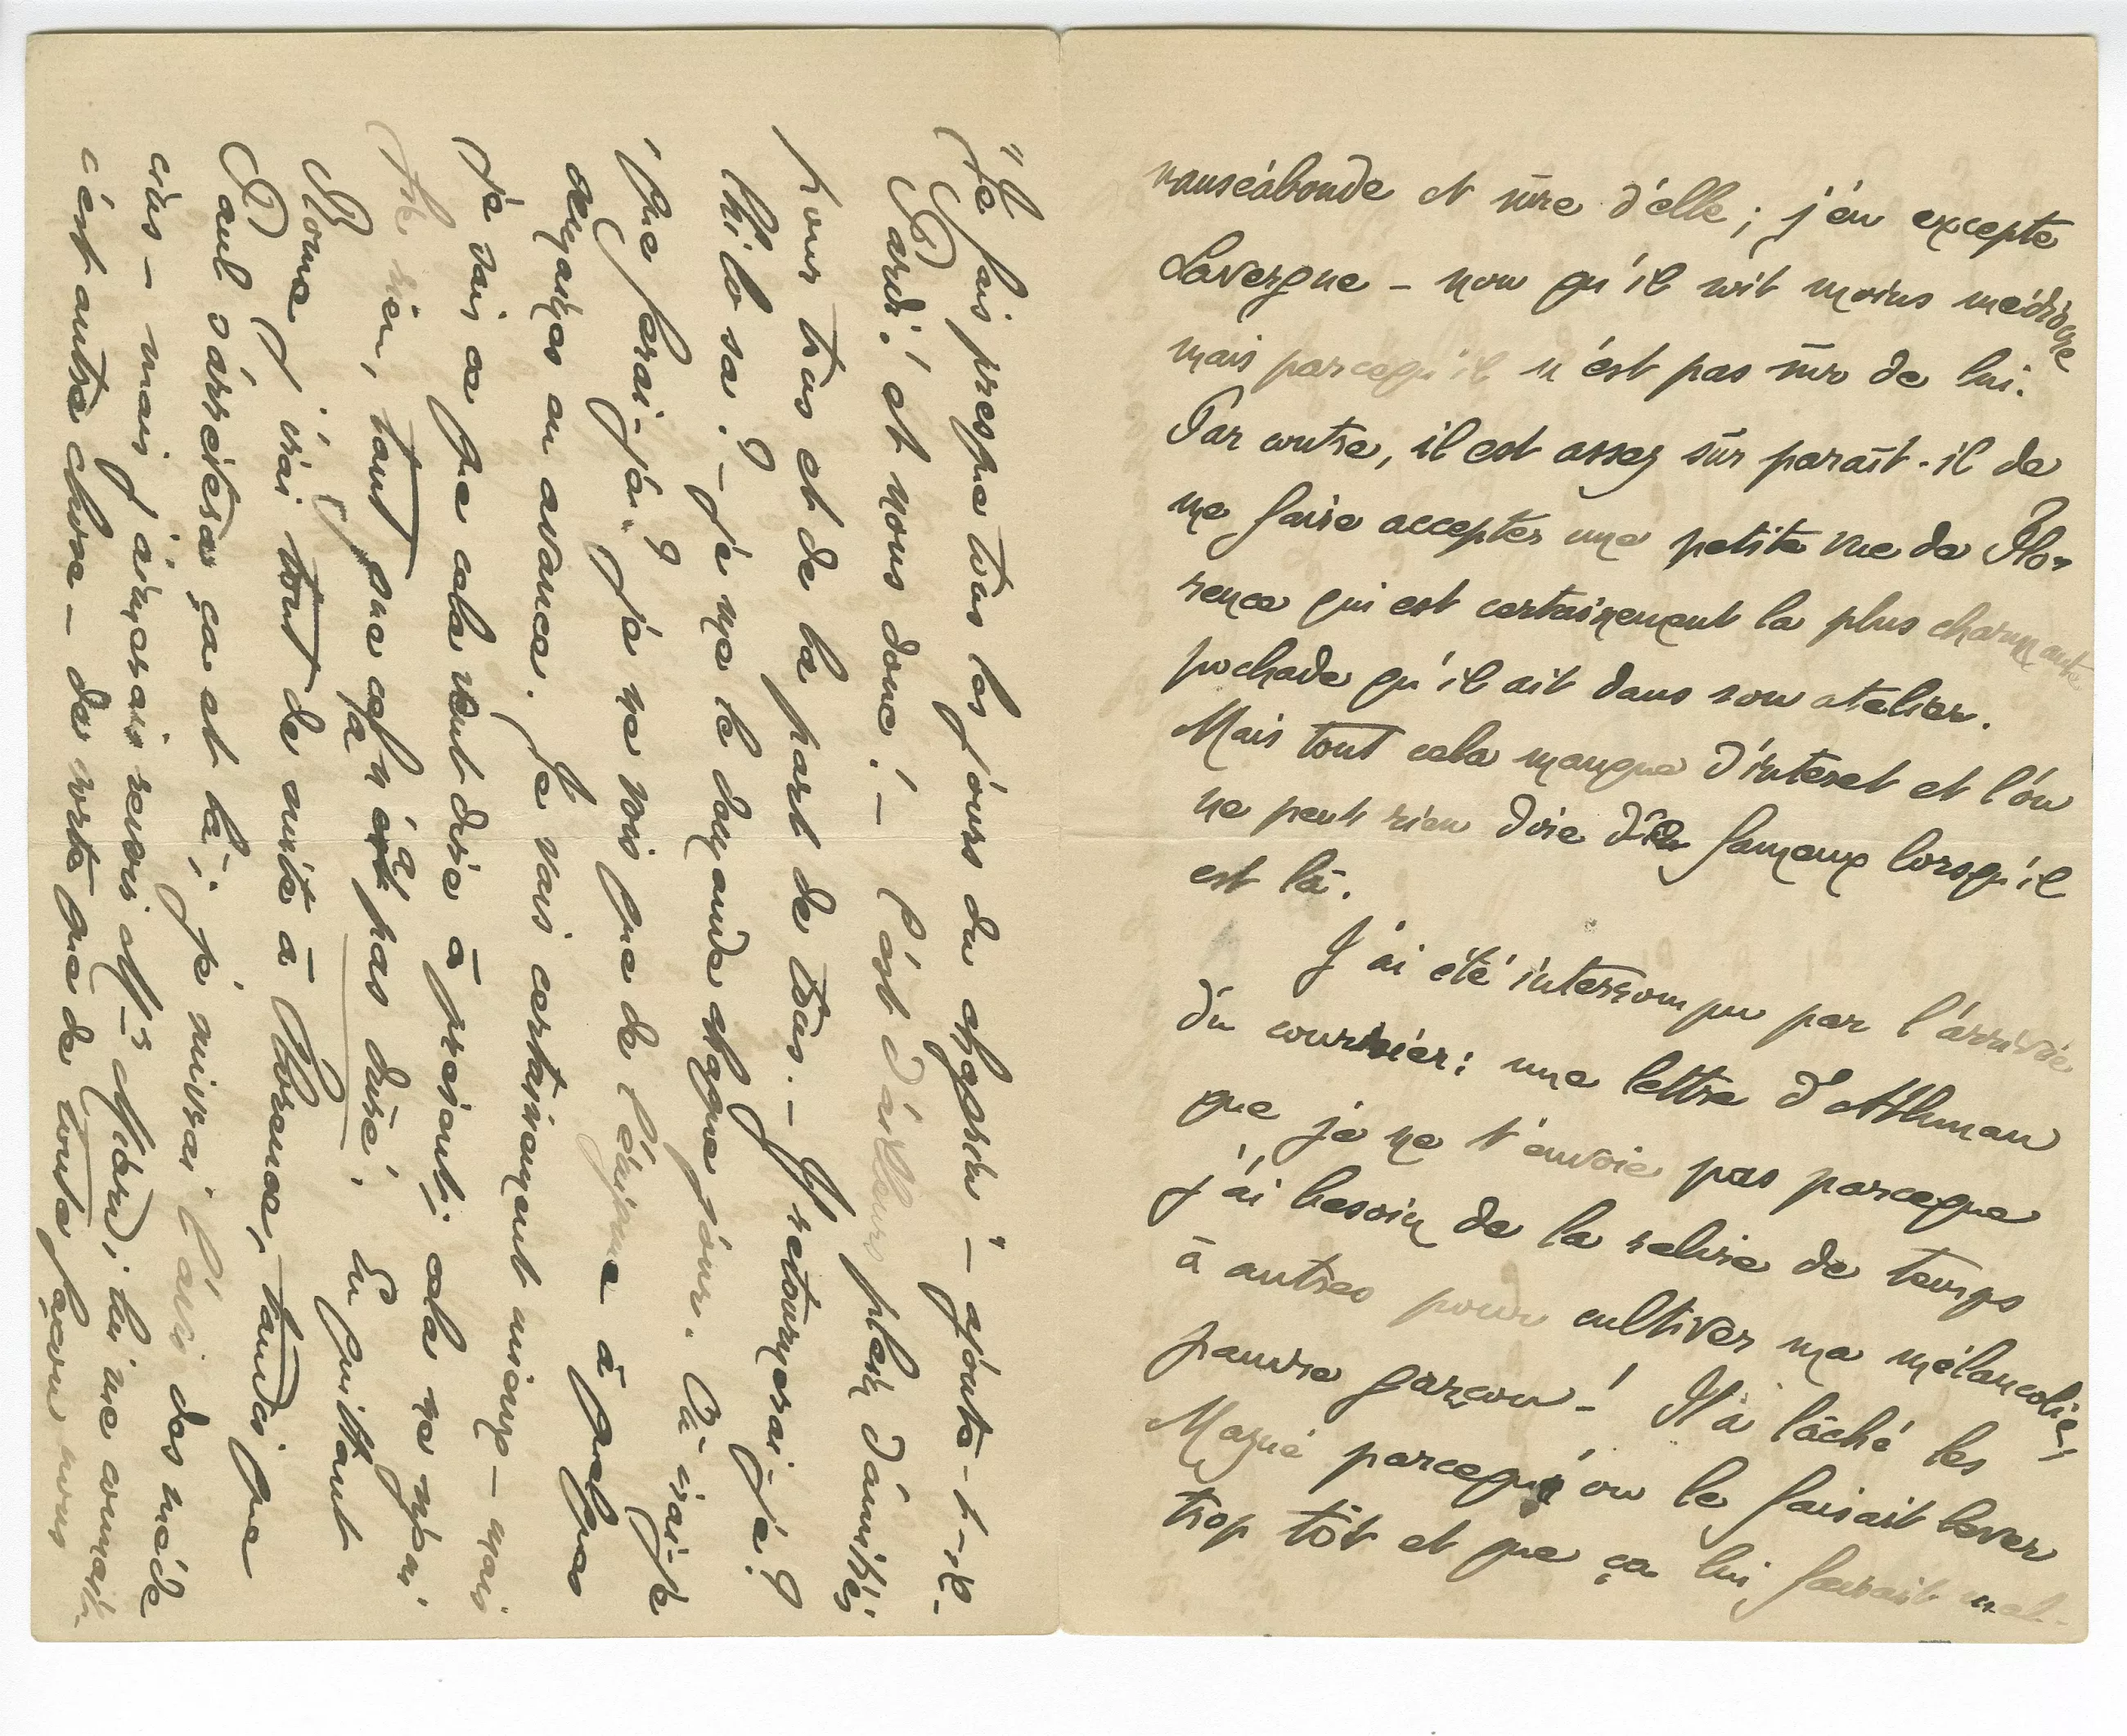 nauséabonde et sûre d'elle ; j'en excepte
Lavergne – non qu'il soit moins médiocre
mais parcequ'il n'est pas sûr de lui.
Par contre, il est assez sûr paraît-il de
me faire accepter une petite vue de Flo-
rence qui est certainement la plus charmante
pochade qu'il ait dans son atelier.
Mais tout cela manque d'interet et l'on
ne peut rien dire de fameux lorsqu'il
est là.
J'ai été interrompu par l'arrivée
du courrier : une lettre d'Athman
que je ne t'envoie pas parceque
j'ai besoin de la relire de temps
à autres pour cultiver ma mélancolie ;
pauvre garçon ! Il a lâché les
parcequ'on le faisait lever
trop tôt et que ça lui faisait mal -
"Je fais presque tous les jours du chagrin" – ajoute-t-il –
Pardi ! et nous donc ! – C'est d'ailleurs plein d'amitiés
pour tous et de la part de tous. – Y retournerai-je ?
Chi lo sa ? – je me le demande chaque jour. Où irai-je
Que ferai-je ? je ne vois que de l'énigme à quelques
semaines en avance. Je vais certainement mieux – mais
je sais ce que cela veut dire à présent : cela ne signi
fie rien, tant que ça n'a pas duré. En quittant
Rome j'irai tout de suite à Florence, tandis que
Paul s'arrêtera çà et là ; je suivrai l'avis des méde
cins – mais j'aimerais revoir ; lui me connaît
c'est autre chose – de sorte que de toute façon nous